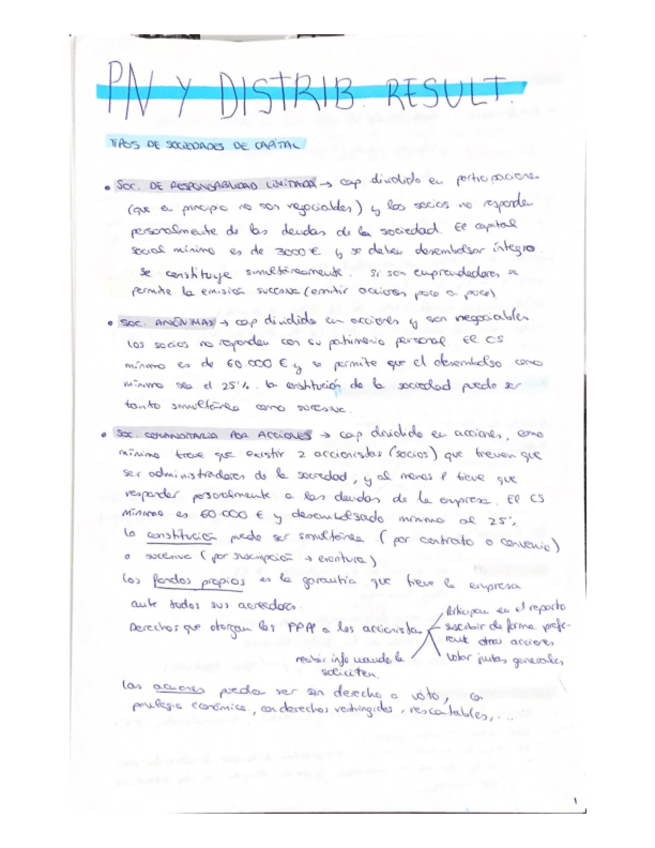 PN Y DISTRIB. RESULT.
TIPOS DE SOCIEDADES DE CAPITAL
• SOC. DE RESPONSABILIDAD LIMITADA → cap dividido en participaciones
(que en principio no son negociables) y los socios no responden
personalmente de las deudas de la sociedad. El capital
social mínimo es de 3000 € y se deben desembolsar íntegro.
Se constituye simultáneamente. Si son emprendedores se
permite la emisión sucesiva (emitir acciones poco a poco)
• SOC. ANÓNIMAS → cap dividido en acciones y son negociables
Los socios no responden con su patrimonio personal El CS
mínimo es de 60 000 € y se permite que el desembolso como
mínimo sea el 25%. La constitución de la sociedad puede ser
tanto simultánea como sucesiva.
• SOC. COMANDITARIA POR ACCIONES → cap dividido en acciones, como
mínimo tiene que existir 2 accionistas (socios) que tienen que
ser administradores de la sociedad, y al menos 1 tiene que
responder personalmente a las deudas de la empresa. El CS
mínimo es 60.000 € y desembolsado mínimo al 25%
La constitución puede ser simultánea (por contrato o convenio)
o sucesiva (por suscripción → escritura)
Los fondos propios es la garantía que tiene la empresa
ante todos sus acreedores.
Derechos que otorgan las a los accionistas
Participar en el reparto
suscribir de forma prefe-
rente otras acciones
Votar juntas generales
recibir info cuando la
soliciten.
Las acciones pueden ser sin derecho a voto, con
privilegio económico, con derechos restringidos, rescatables, ...
1